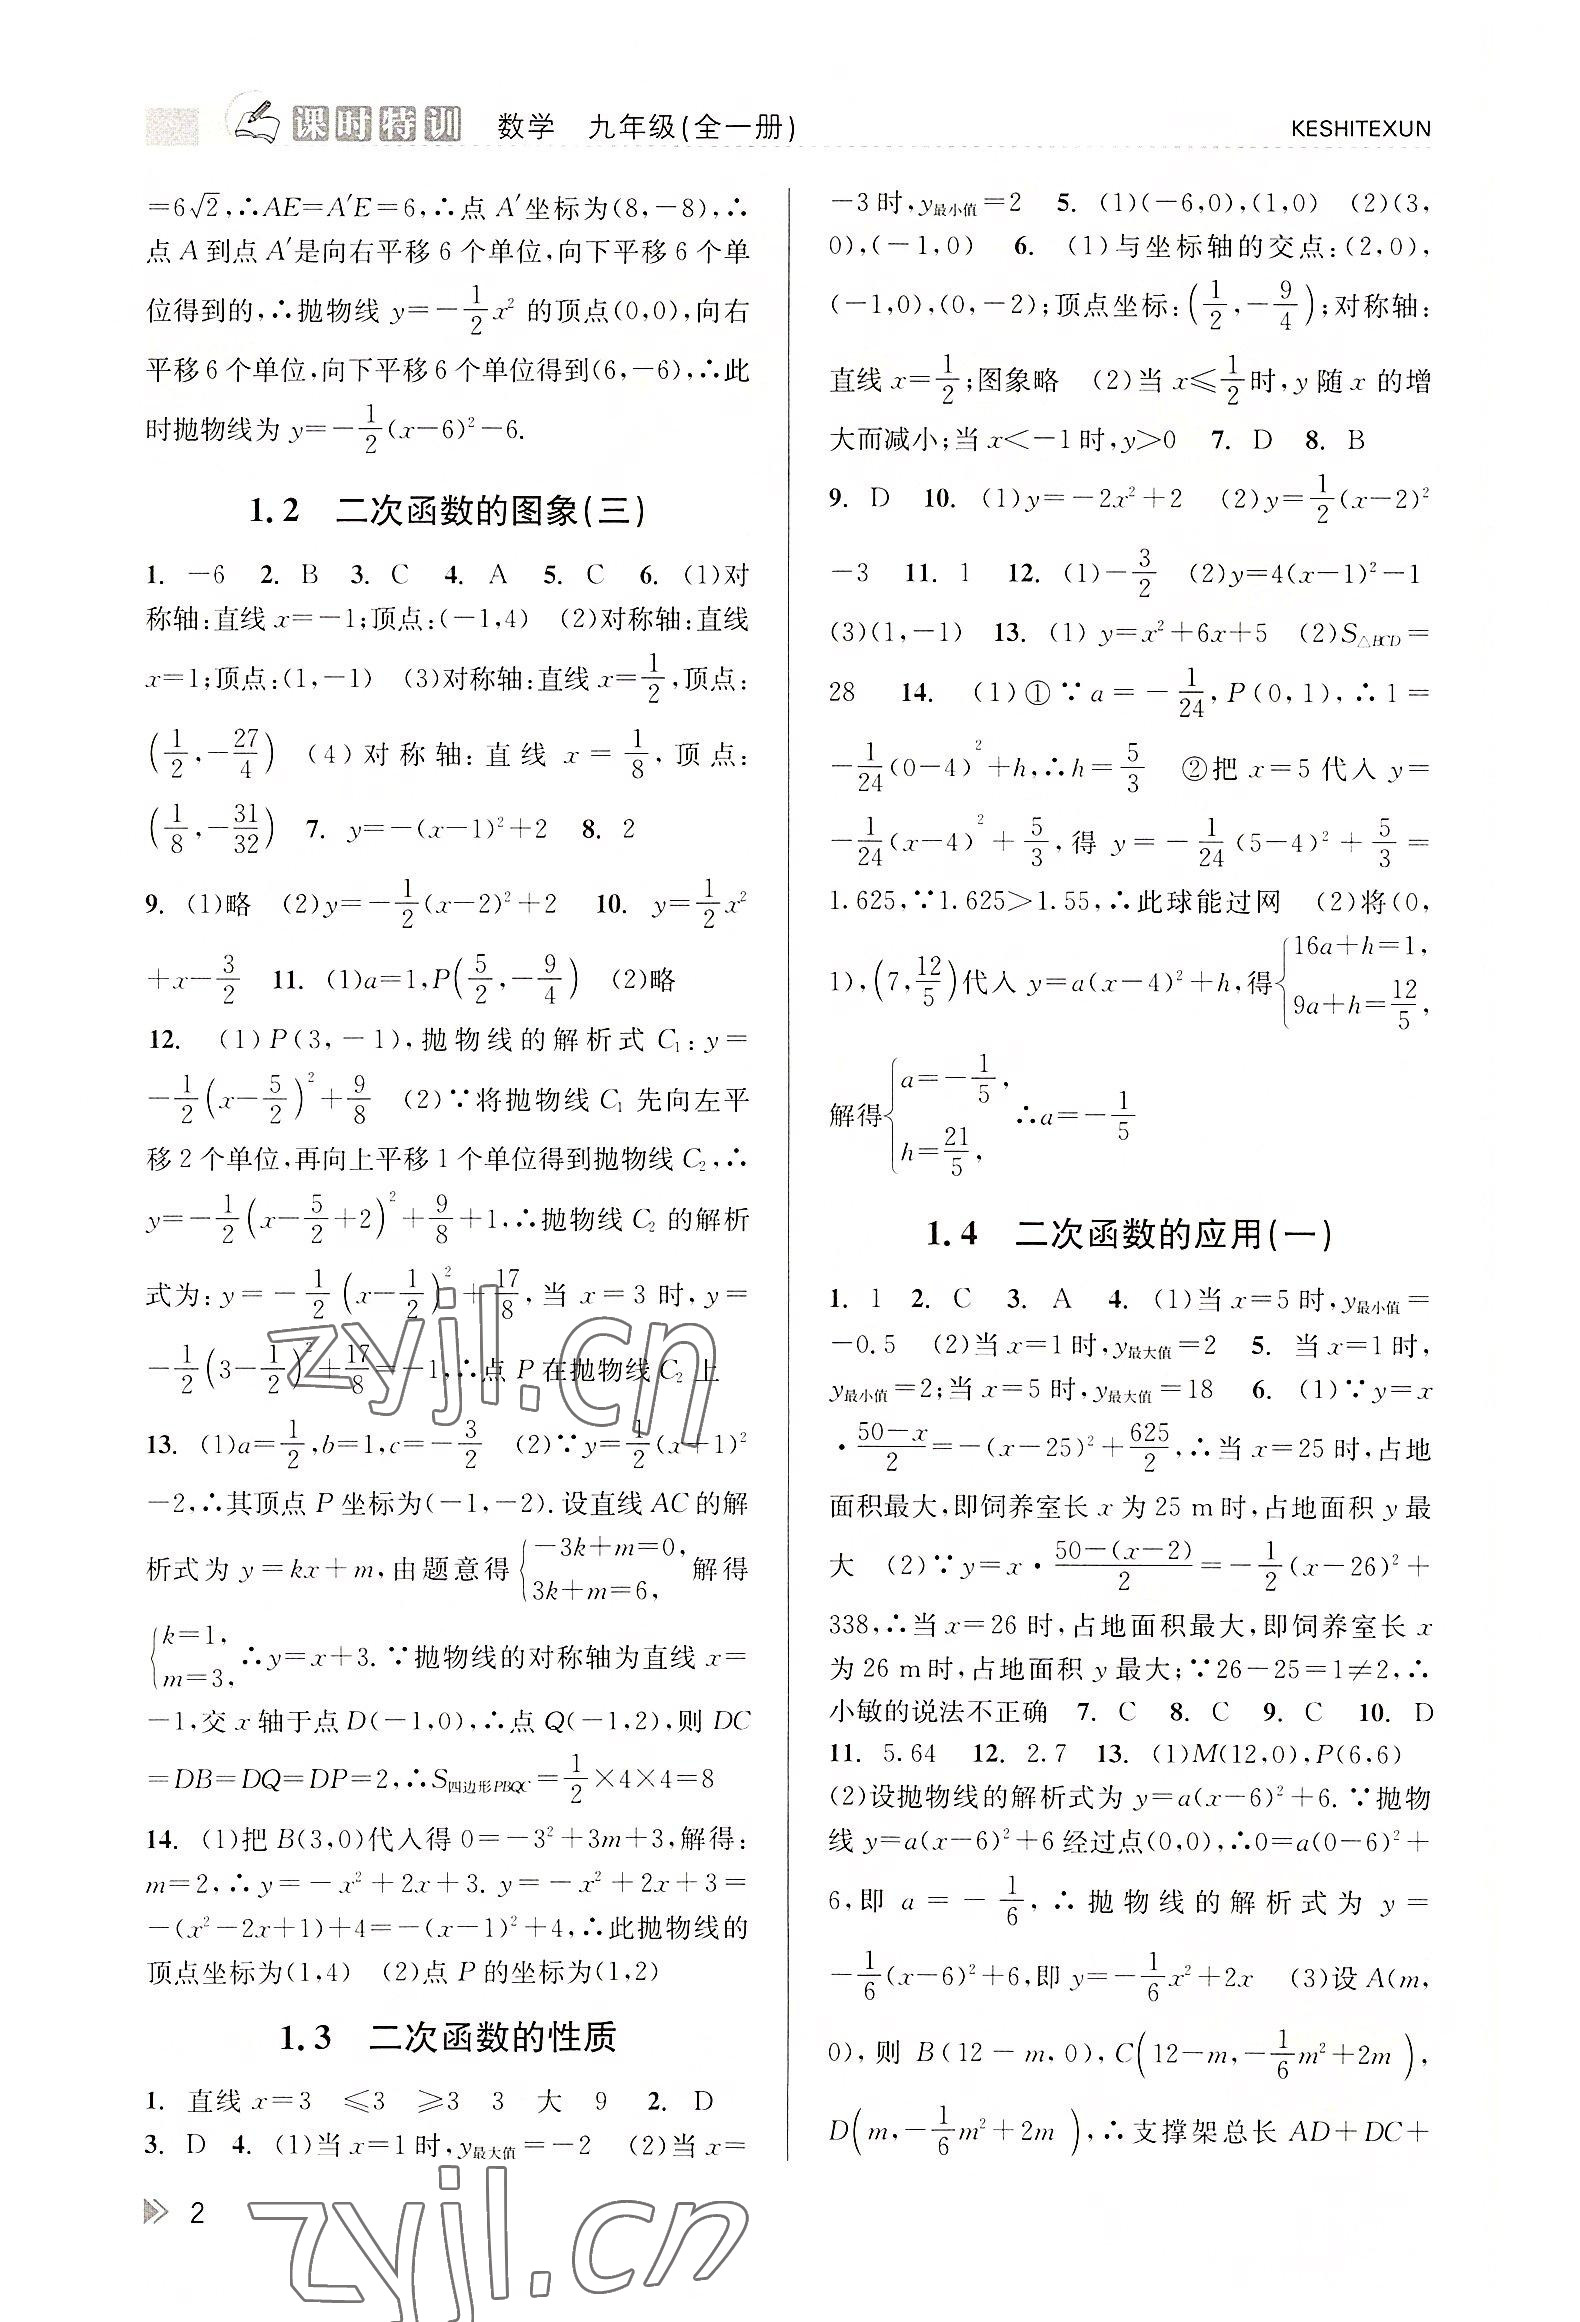 课时特训 数学 九年级(全一册)
KESHITEXUN
=6√2,∴AE=A′E=6,∴点 A′坐标为(8,-8),∴
点 A 到点 A′是向右平移 6 个单位,向下平移 6 个单
位得到的,∴抛物线 y=-1/2x² 的顶点(0,0),向右
平移 6 个单位,向下平移 6 个单位得到(6,-6),∴此
时抛物线为 y=-1/2(x-6)²-6.
1.2 二次函数的图象(三)
1. -6 2. B 3. C 4. A 5. C 6. (1)对
称轴:直线 x=-1;顶点:(-1,4) (2)对称轴:直线
x=1;顶点:(1,-1) (3)对称轴:直线 x=1/2,顶点:
(1/2,-27/4) (4)对称轴:直线 x=1/8,顶点:
(1/8,-31/32) 7. y=-(x-1)²+2 8. 2
9. (1)略 (2)y=-1/2(x-2)²+2 10. y=1/2x²
+x-3/2 11. (1)a=1,P(5/2,-9/4) (2)略
12. (1)P(3,-1),抛物线的解析式 C₁:y=
-1/2(x-5/2)²+9/8 (2)∵将抛物线 C₁ 先向左平
移 2 个单位,再向上平移 1 个单位得到抛物线 C₂,∴
y=-1/2(x-5/2+2)²+9/8+1,∴抛物线 C₂ 的解析
式为:y=-1/2(x-1/2)²+17/8,当 x=3 时,y=
-1/2(3-1/2)²+17/8=-1,∴点 P 在抛物线 C₂ 上
13. (1)a=1/2,b=1,c=-3/2 (2)∵y=1/2(x+1)²
-2,∴其顶点 P 坐标为(-1,-2).设直线 AC 的解
析式为 y=kx+m,由题意得{-3k+m=0, 3k+m=6, 解得
{k=1, m=3, ∴y=x+3.∵抛物线的对称轴为直线 x=
-1,交 x 轴于点 D(-1,0),∴点 Q(-1,2),则 DC
=DB=DQ=DP=2,∴S四边形PBQC=1/2×4×4=8
14. (1)把 B(3,0)代入得 0=-3²+3m+3,解得:
m=2,∴y=-x²+2x+3. y=-x²+2x+3=
-(x²-2x+1)+4=-(x-1)²+4,∴此抛物线的
顶点坐标为(1,4) (2)点 P 的坐标为(1,2)
1.3 二次函数的性质
1. 直线 x=3 ≤3 ≥3 3 大 9 2. D
3. D 4. (1)当 x=1 时,y最大值=-2 (2)当 x=
-3 时,y最小值=2 5. (1)(-6,0),(1,0) (2)(3,
0),(-1,0) 6. (1)与坐标轴的交点:(2,0),
(-1,0),(0,-2);顶点坐标:(1/2,-9/4);对称轴:
直线 x=1/2;图象略 (2)当 x≤1/2时,y 随 x 的增
大而减小;当 x<-1 时,y>0 7. D 8. B
9. D 10. (1)y=-2x²+2 (2)y=1/2(x-2)²
-3 11. 1 12. (1)-3/2 (2)y=4(x-1)²-1
(3)(1,-1) 13. (1) y=x²+6x+5 (2)S△BCD=
28 14. (1)①∵a=-1/24,P(0,1),∴1=
-1/24(0-4)²+h,∴h=5/3 ②把 x=5 代入 y=
-1/24(x-4)²+5/3,得 y=-1/24(5-4)²+5/3=
1.625,∵1.625>1.55,∴此球能过网 (2)将(0,
1),(7,12/5)代入 y=a(x-4)²+h,得{16a+h=1, 9a+h=12/5,
解得{a=-1/5, h=21/5, ∴a=-1/5
1.4 二次函数的应用(一)
1. 1 2. C 3. A 4. (1)当 x=5 时,y最小值=
-0.5 (2)当 x=1 时,y最大值=2 5. 当 x=1 时,
y最小值=2;当 x=5 时,y最大值=18 6. (1)∵y=x
·(50-x)/2=-(x-25)²+625/2,∴当 x=25 时,占地
面积最大,即饲养室长 x 为 25 m 时,占地面积 y 最
大 (2)∵y=x·(50-(x-2))/2=-1/2(x-26)²+
338,∴当 x=26 时,占地面积最大,即饲养室长 x
为 26 m 时,占地面积 y 最大;∵26-25=1≠2,∴
小敏的说法不正确 7. C 8. C 9. C 10. D
11. 5.64 12. 2.7 13. (1)M(12,0),P(6,6)
(2)设抛物线的解析式为 y=a(x-6)²+6.∵抛物
线 y=a(x-6)²+6 经过点(0,0),∴0=a(0-6)²+
6,即 a=-1/6,∴抛物线的解析式为 y=
-1/6(x-6)²+6,即 y=-1/6x²+2x (3)设 A(m,
0),则 B(12-m,0),C(12-m,-1/6m²+2m),
D(m,-1/6m²+2m),∴支撑架总长 AD+DC+
2
zyjl.cn
zyjl.cn